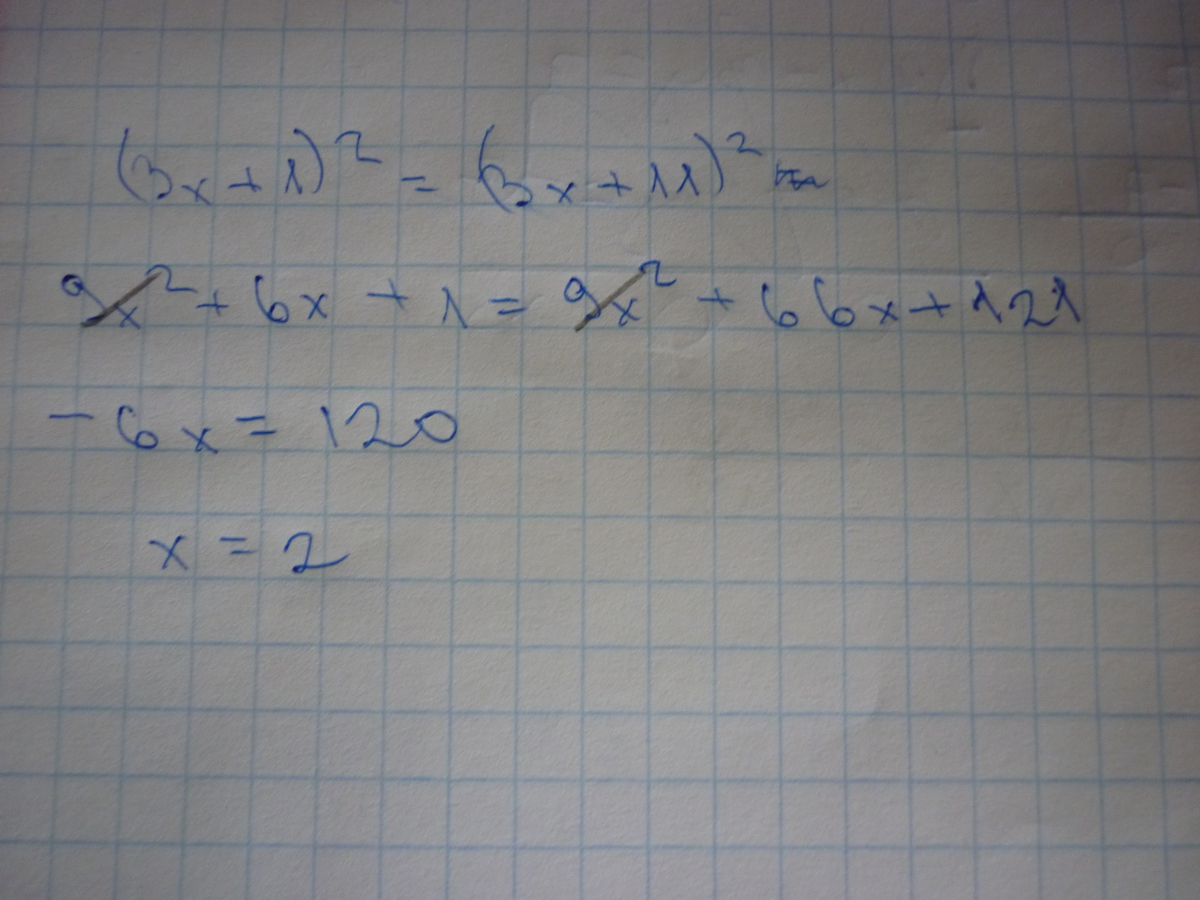 (3x+1)² = (3x+11)²
9x² + 6x + 1 = 9x² + 66x + 121
- 6x = 120
x = 2